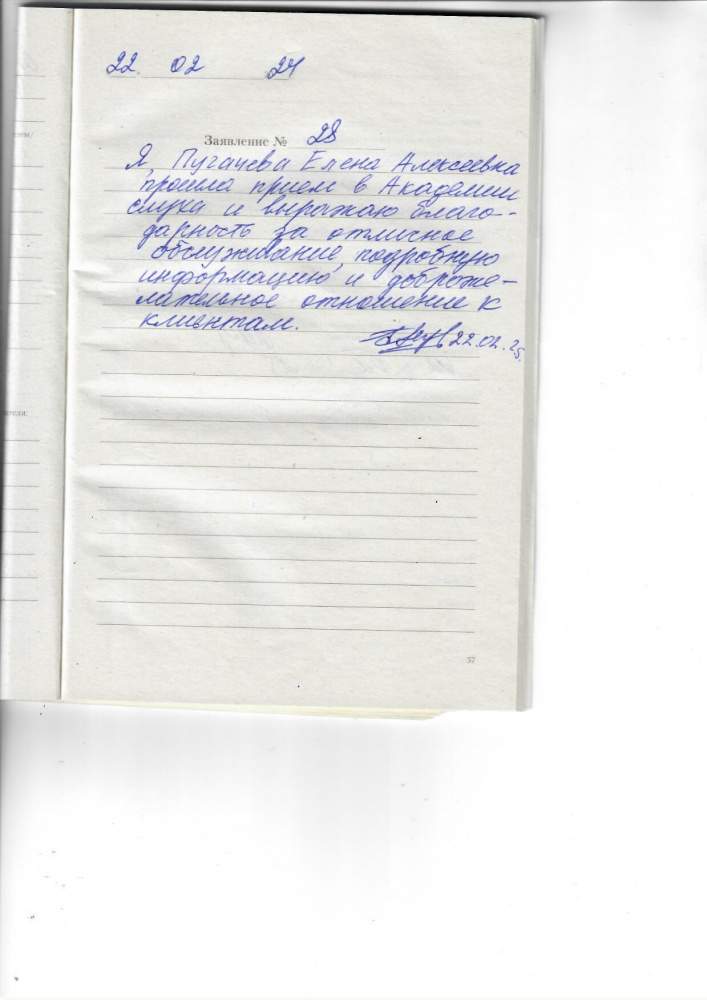 22. 02 24
Заявление № 28
Я, Пугачева Елена Алексеевна
прошла прием в Академии
слуха и выражаю благо-
дарность за отличное
обслуживание, подробную
информацию и доброже-
лательное отношение к
клиентам.
22.02.25.
57